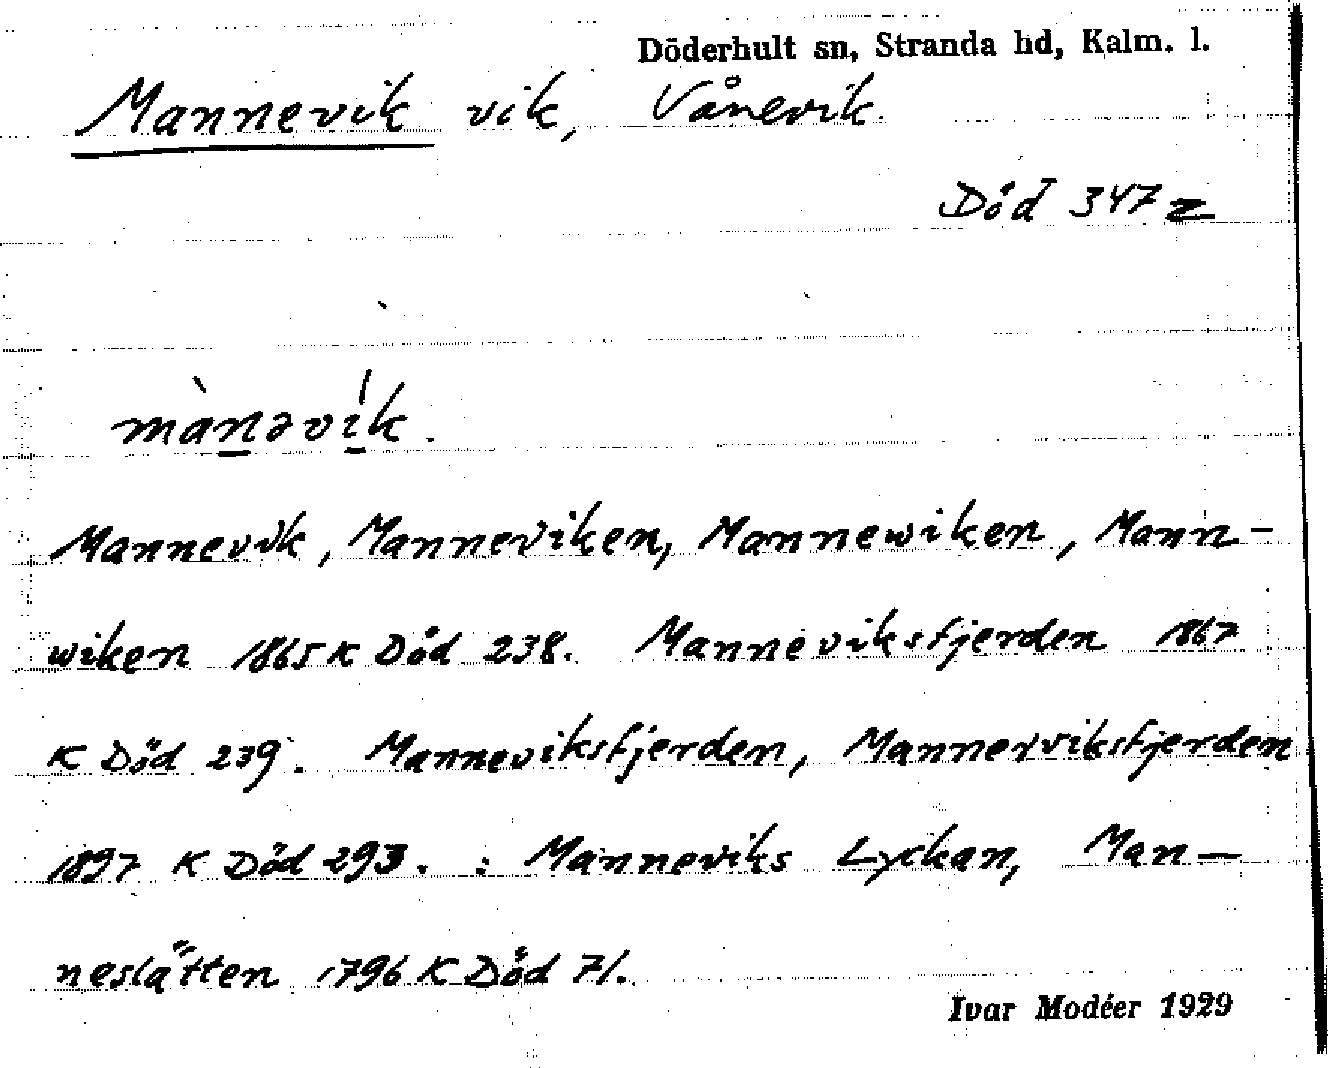 Döderhult sn, Stranda hd, Kalm. l.
Mannevik vik, Vånevik.
Död 347 z
mànəvík.
Mannevik, Manneviken, Mannewiken, Mann-
wiken 1865 K Död 238. Manneviksfjerden 1867
K Död 239. Manneviksfjerden, Mannerviksfjerden
1897 K Död 293. : Manneviks Lyckan, Man-
neslätten 1796 K Död 71.
Ivar Modéer 1929